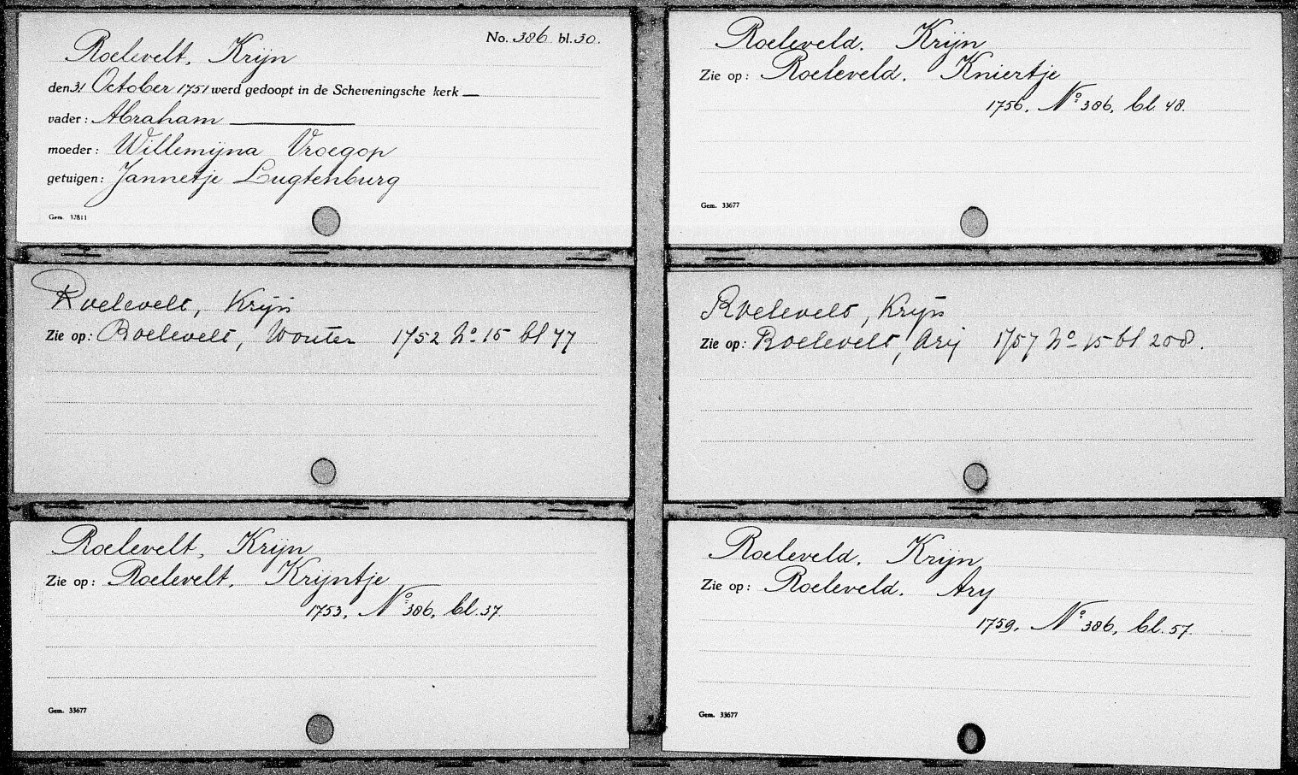 No. 386 bl. 30.
Roelevelt, Krijn
den 31 October 1751 werd gedoopt in de Scheveningsche kerk
vader: Abraham
moeder: Willemijna Vroegop
getuigen: Jannetje Lugtenburg
Gem. 32811
Roelevelt, Krijn
Zie op: Roelevelt, Wouter 1752 No 15 bl 77
Roelevelt, Krijn
Zie op: Roelevelt, Krijntje
1753, No 386, bl. 37.
Gem. 33677
Roeleveld, Krijn
Zie op: Roeleveld, Kniertje
1756, No 386, bl. 48.
Gem. 33677
Roelevelt, Krijn
Zie op: Roelevelt, Arij 1757 No 15 bl 208.
Roeleveld, Krijn
Zie op: Roeleveld, Ary
1759, No 386, bl. 57.
Gem. 33677